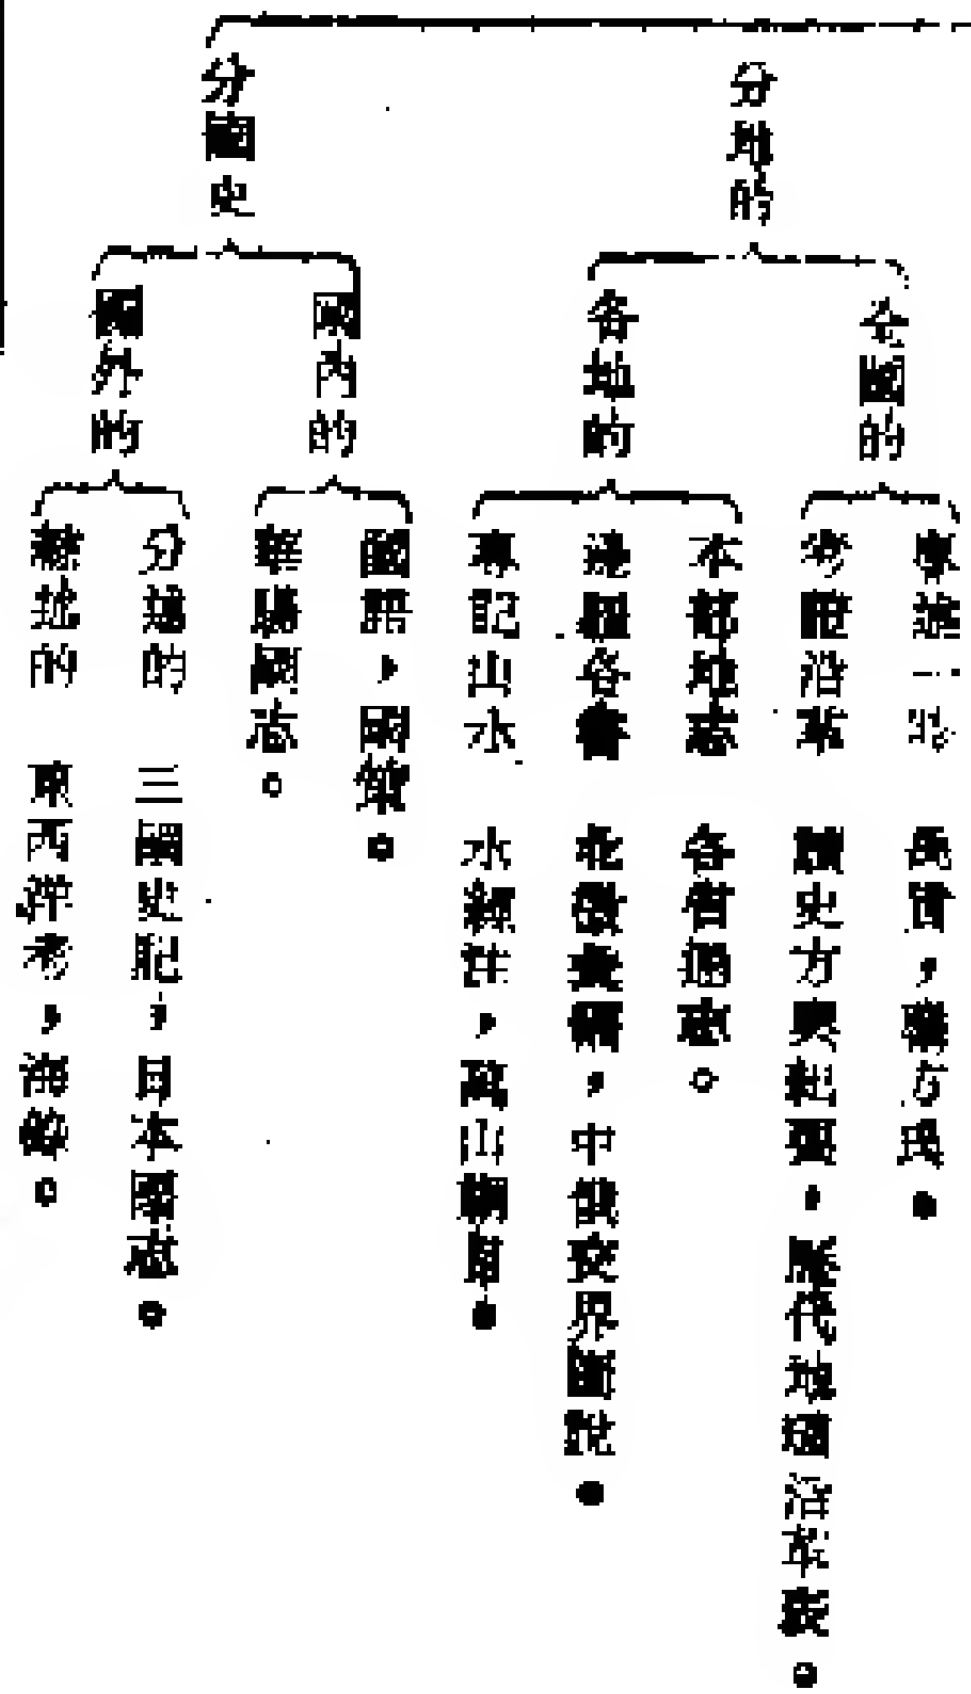 分地的
全國的
專進一時　禹貢，職方考。
考證沿革　讀史方輿紀要，歷代地理沿革表。
各地的
本部地志　各省通志。
邊疆各書　北徼彙編，中俄交界圖說。
專記山水　水經注，萬山綱目。
分國史
國內的
國語，國策。
華陽國志。
國外的
分述的　三國史記，日本國志。
總述的　東西洋考，海錄。